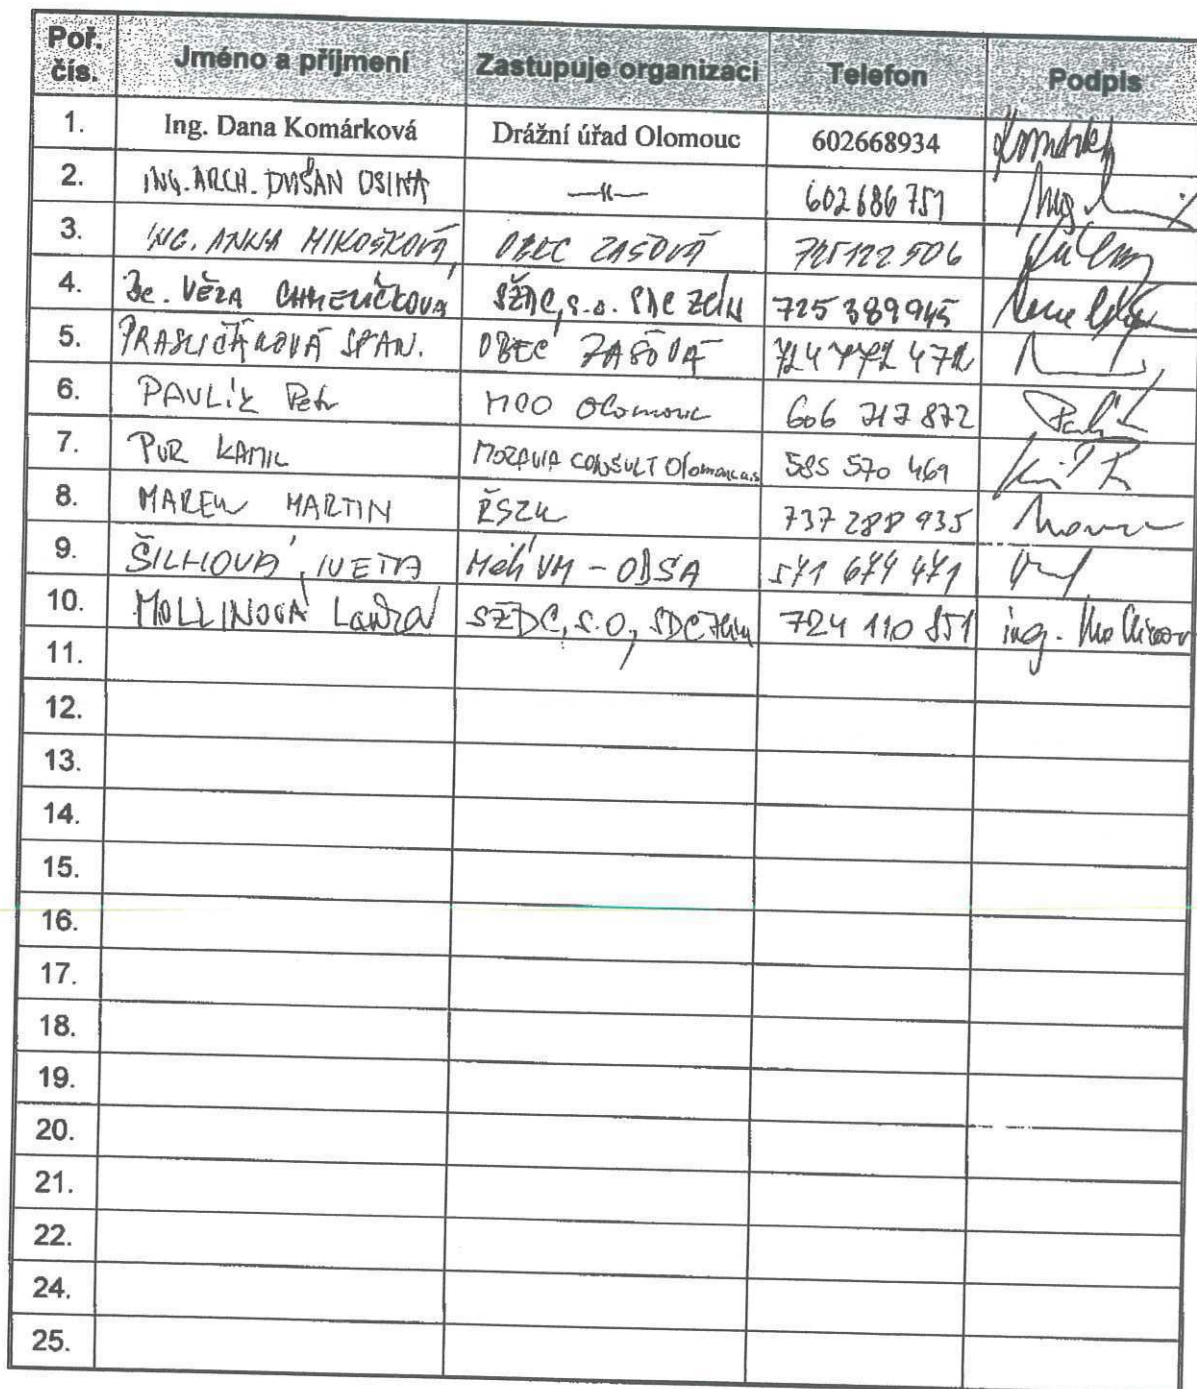 Poř. čís. Jméno a příjmení Zastupuje organizaci Telefon Podpis
1. Ing. Dana Komárková Drážní úřad Olomouc 602668934
2. ING. ARCH. DUŠAN OSINA —"— 602 686 751
3. ING. ANNA MIKOŠKOVÁ, OBEC ZAŠOVÁ 725122506
4. Bc. VĚRA CHMELÍČKOVÁ SŽDC, s.o. SDC ZLÍN 725 389945
5. OBEC ZAŠOVÁ
6. PAVLÍK Petr MOO Olomouc 606 717 872
7. PUR KAMIL MORAVIA CONSULT Olomouc a.s 585 570 469
8. MAREK MARTIN 737 288 935
9. ŠILHOVÁ, IVETA MěÚ VM - 571 674 471
10. MOLLINOVÁ SŽDC, s.o, SDC Zlín 724 110 851 ing.
11.
12.
13.
14.
15.
16.
17.
18.
19.
20.
21.
22.
24.
25.